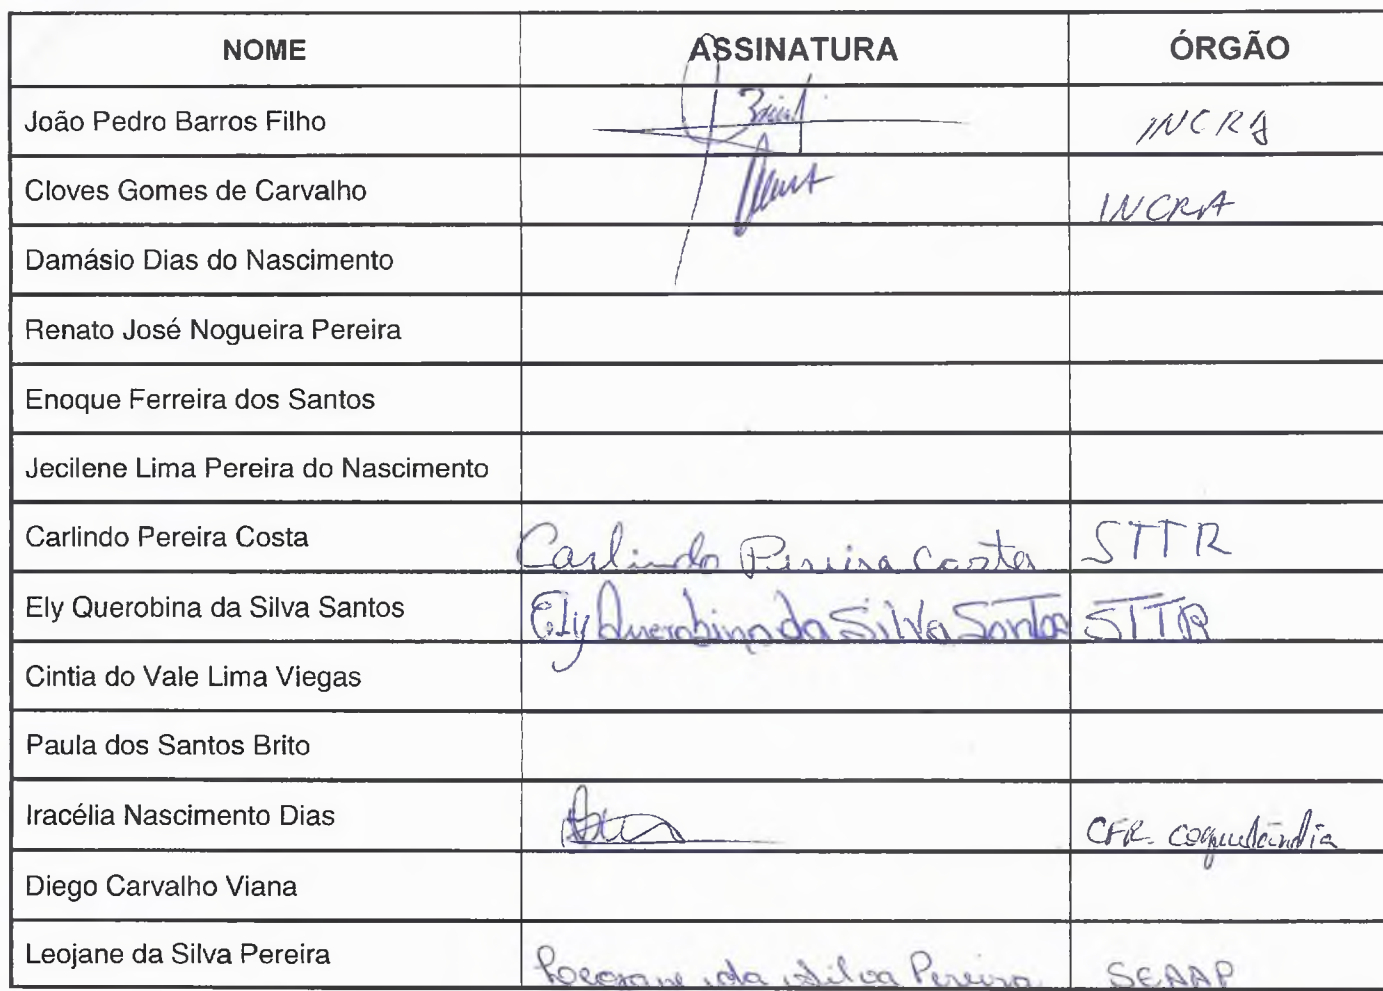 NOME ASSINATURA ÓRGÃO
João Pedro Barros Filho INCRA
Cloves Gomes de Carvalho INCRA
Damásio Dias do Nascimento
Renato José Nogueira Pereira
Enoque Ferreira dos Santos
Jecilene Lima Pereira do Nascimento
Carlindo Pereira Costa Carlindo Pereira Costa STTR
Ely Querobina da Silva Santos Ely Querobina da Silva Santos STTR
Cintia do Vale Lima Viegas
Paula dos Santos Brito
Iracélia Nascimento Dias CFR. Coquelândia
Diego Carvalho Viana
Leojane da Silva Pereira Leojane da Silva Pereira SEAAP